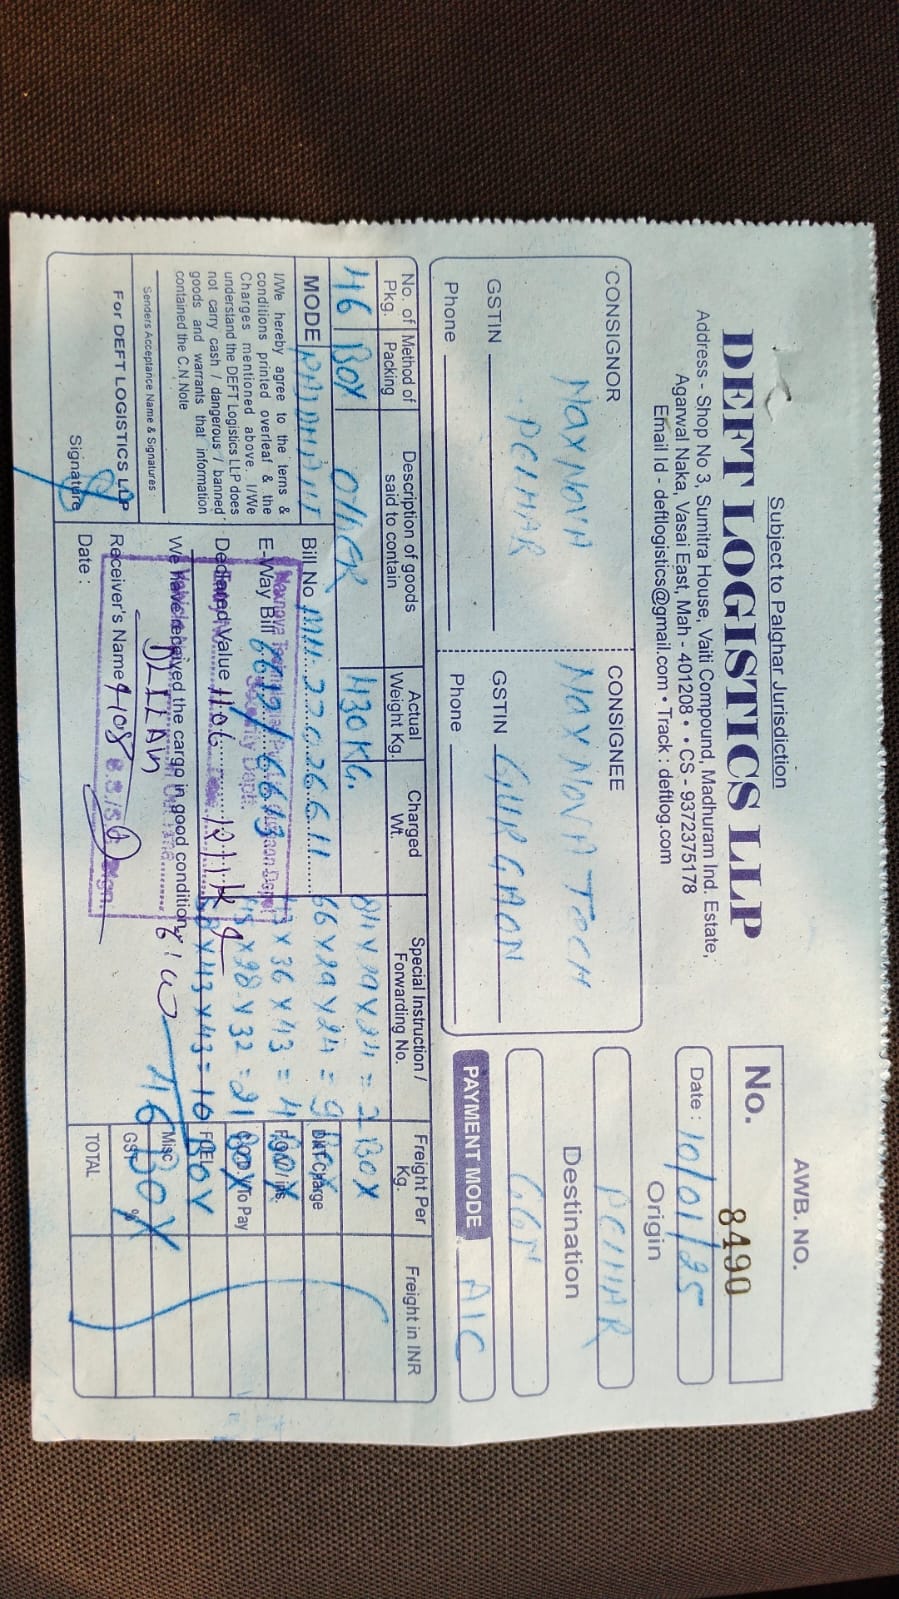 Subject to Palghar Jurisdiction
DEFT LOGISTICS LLP
Address - Shop No 3, Sumitra House, Vaiti Compound, Madhuram Ind. Estate,
Agarwal Naka, Vasai East, Mah - 401208 • • CS - 9372375178
Email Id - deftlogistics@gmail.com • Track : deftlog.com
AWB. NO.
No. 8490
Date : 10/01/25
Origin
PCIHAR
Destination
GGN
PAYMENT MODE AIC
CONSIGNOR
MAXNOVA
PCIHAR
GSTIN
Phone
CONSIGNEE
MAXNOVA TECH
GSTIN GURGAON
Phone
No. of Pkg.
Method of Packing
Description of goods said to contain
Actual Weight Kg.
Charged Wt.
Special Instruction / Forwarding No.
Freight Per Kg.
Freight in INR
46 BOX OTHER 430 KG.
66 x 29 x 24 = 9
x 36 x 43 = 4
x 28 x 32 = 21
x 43 x 43 = 10
46 BOX
MODE
Bill No MH22026611
E-Way Bill 6612/6613
Declared Value
We have received the cargo in good condition
Receiver's Name
Date :
I/We hereby agree to the terms &
conditions printed overleaf & the
Charges mentioned above. I/We
understand the DEFT Logistics LLP does
not carry cash / dangerous / banned
goods and warrants that information
contained the C.N.Note
Senders Acceptance Name & Signatures
For DEFT LOGISTICS LLP
Signature
DKT Charge
FOD / To Pay
Misc
GST %
TOTAL